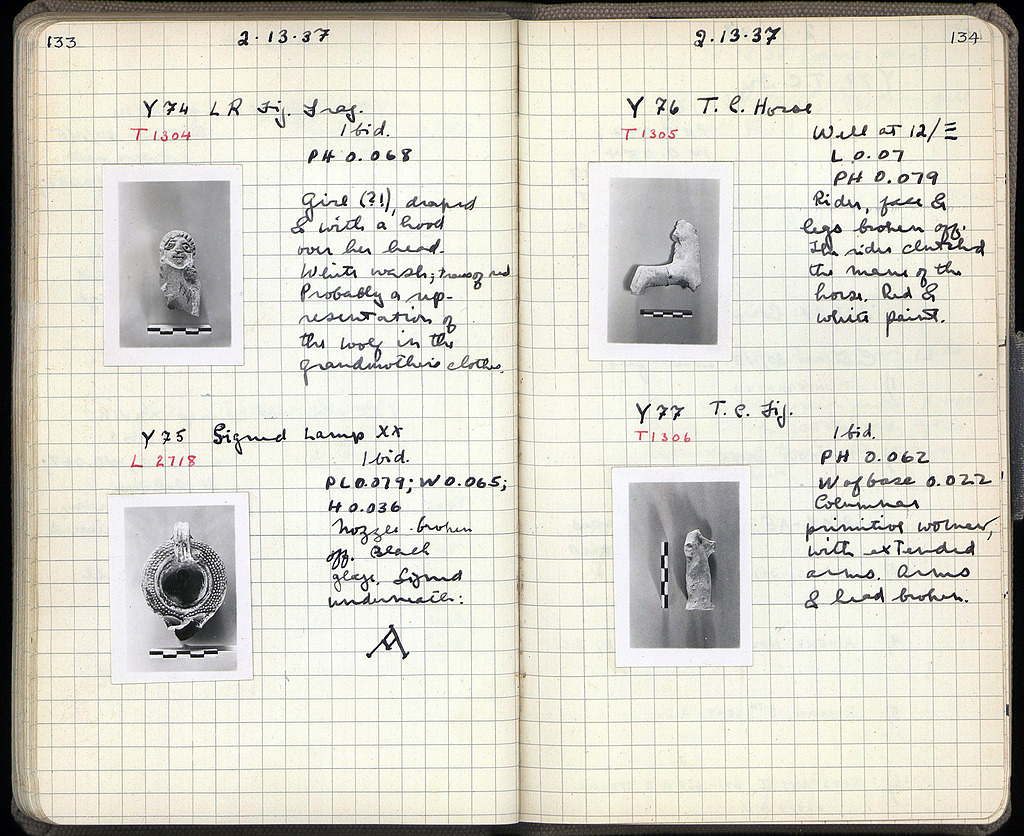 133
2·13·37
Y 74 LR Fig. Frag.
T 1304
Ibid.
PH 0.068
Girl (?!), draped
& with a hood
over her head.
White wash; traces of red
Probably a rep-
resentation of
the wolf in the
grandmother's clothes.
Y 75 Signed Lamp XX
L 2718
Ibid.
PL 0.079; W 0.065;
H 0.036
Nozzle broken
off. Black
glaze. Signed
underneath:
2·13·37
134
Y 76 T. C. Horse
T 1305
Well at 12/Ξ
L 0.07
PH 0.079
Rider, face &
legs broken off.
The rider clutched
the mane of the
horse. Red &
white paint.
Y 77 T. C. Fig.
T 1306
Ibid.
PH 0.062
W of base 0.022
Columnar
primitive woman,
with extended
arms. Arms
& head broken.